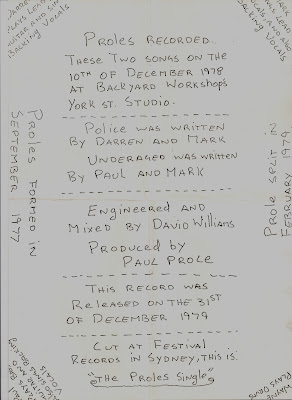 Proles Recorded
These Two songs on the
10th of December 1978
at Backyard Workshop's
York St. Studio.
Police was written
By Darren and Mark
Underaged was written
By Paul and Mark
Engineered and
Mixed by David Williams
Produced by
Paul Prole
This record was
Released on the 31st
of December 1979
Cut at Festival
Records in Sydney, this is.
"The Proles Single"
Proles formed in
September 1977
Prole split in
February 1979
Plays lead
Backing Vocals
Plays Drums